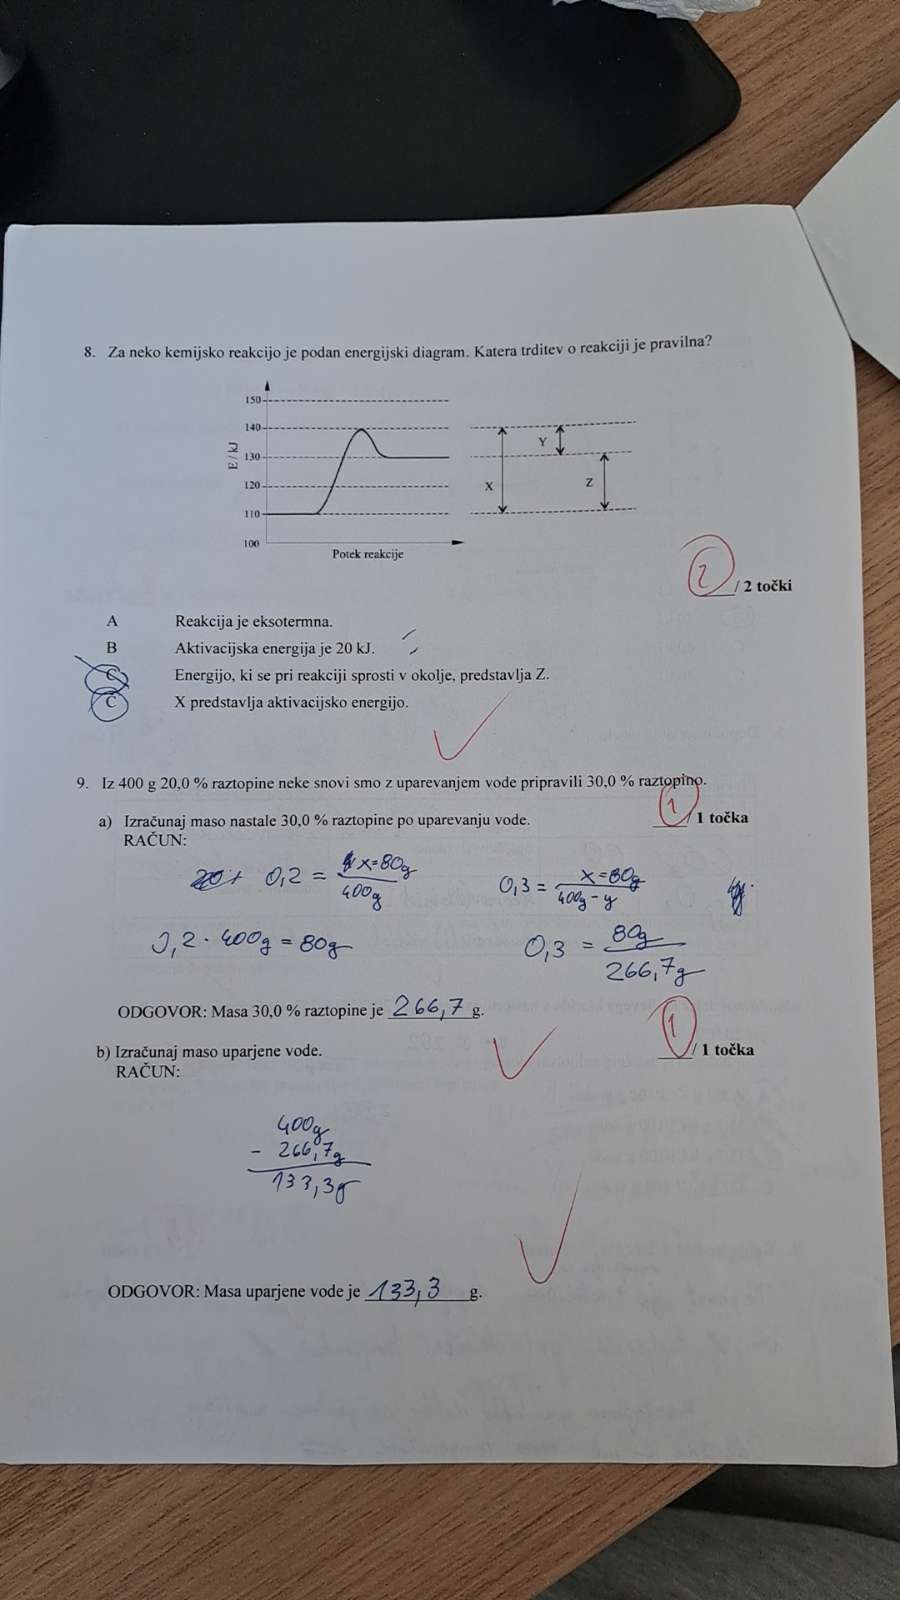 8. Za neko kemijsko reakcijo je podan energijski diagram. Katera trditev o reakciji je pravilna?
E / kJ
150
140
130
120
110
100
Potek reakcije
X
Y
Z
2 / 2 točki
A Reakcija je eksotermna.
B Aktivacijska energija je 20 kJ.
C Energijo, ki se pri reakciji sprosti v okolje, predstavlja Z.
C X predstavlja aktivacijsko energijo.
9. Iz 400 g 20,0 % raztopine neke snovi smo z uparevanjem vode pripravili 30,0 % raztopino.
a) Izračunaj maso nastale 30,0 % raztopine po uparevanju vode.
1 / 1 točka
RAČUN:
0,2 = x=80g / 400g
0,3 = x=80g / 400g - y
0,2 · 400g = 80g
0,3 = 80g / 266,7g
ODGOVOR: Masa 30,0 % raztopine je 266,7 g.
b) Izračunaj maso uparjene vode.
1 / 1 točka
RAČUN:
400g
- 266,7g
133,3g
ODGOVOR: Masa uparjene vode je 133,3 g.